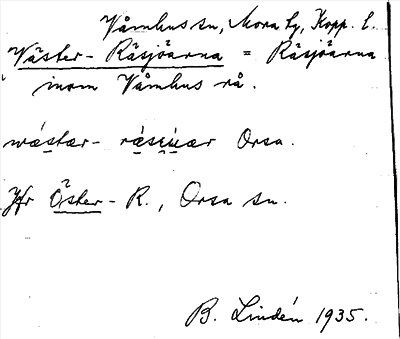 Våmhus sn, Mora tg, Kopp. l.
Väster- Räsjöarna = Räsjöarna
inom Våmhus rå.
wæstær- ræsɯær Orsa.
Jfr Öster- R., Orsa sn.
B. Lindén 1935.